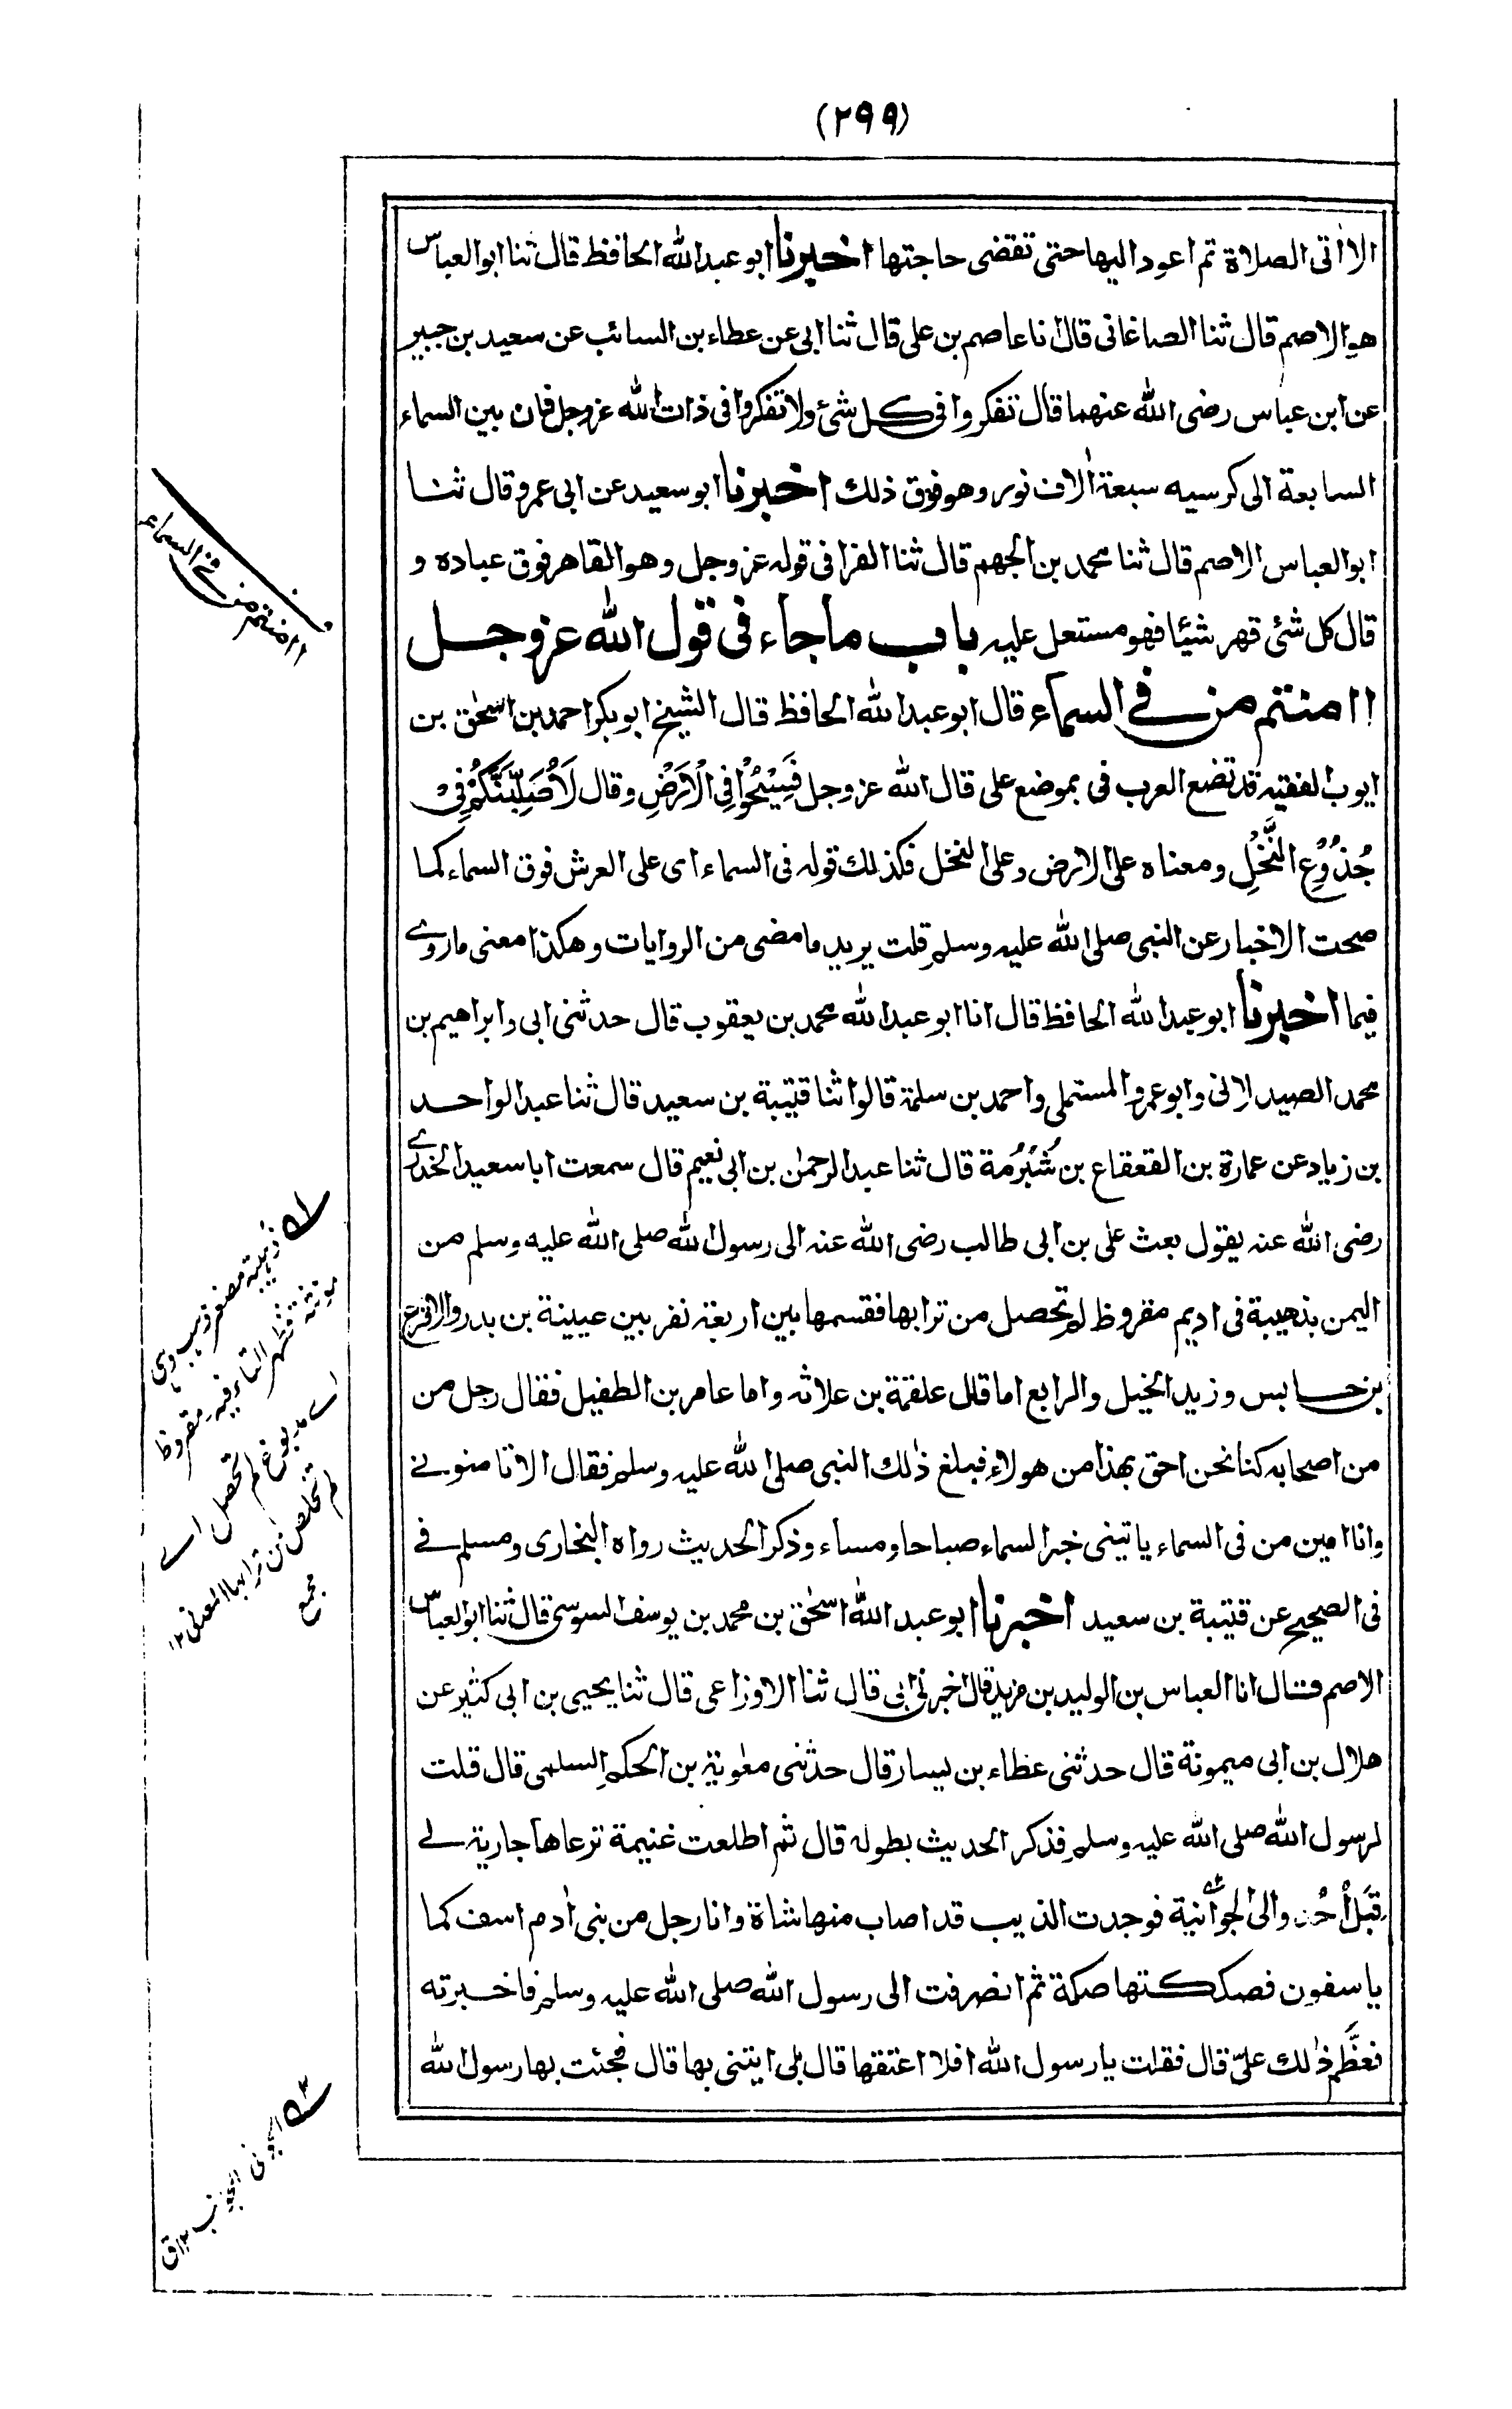 (٢٩٩)
الا اٰتی الصلاة ثم اعود الیها حتی تقضی حاجتها اخبرنا ابو عبد الله الحافظ قال ثنا ابو العباس
هو الاصم قال ثنا الصاغانی قال انا عاصم بن علی قال ثنا ابی عن عطاء بن السائب عن سعید بن جبیر
عن ابن عباس رضی الله عنهما قال تفکروا فی کل شئ ولا تفکروا فی ذات الله عز وجل فان بین السماء
السابعة الی کرسیه سبعة اٰلاف نور وهو فوق ذلك اخبرنا ابو سعید عن ابی عمرو قال ثنا
ابو العباس الاصم قال ثنا محمد بن الجهم قال ثنا الفرا فی قوله عز وجل وهو القاهر فوق عباده و
قال کل شئ قهر شیئا فهو مستعل علیه باب ما جاء فی قول الله عز وجل
اامنتم من فی السماء قال ابو عبد الله الحافظ قال الشیخ ابو بکر احمد بن اسحٰق بن
ایوب الفقیه قد تضع العرب فی بموضع علی قال الله عز وجل فَسِیْحُوْا فِی الْاَرْضِ وقال لَاُصَلِّبَنَّكُمْ فِیْ
جُذُوْعِ النَّخْلِ ومعناه علی الارض وعلی النخل فکذلك قوله فی السماء ای علی العرش فوق السماء کما
صحت الاخبار عن النبی صلی الله علیه وسلم قلت یرید ما مضی من الروایات وهکذا معنی ما روی
فیما اخبرنا ابو عبد الله الحافظ قال انا ابو عبد الله محمد بن یعقوب قال حدثنی ابی وابراهیم بن
محمد الصیدلانی وابو عمرو المستملی واحمد بن سلمة قالوا ثنا قتیبة بن سعید قال ثنا عبد الواحد
بن زیاد عن عمارة بن القعقاع بن شُبْرُمة قال ثنا عبد الرحمٰن بن ابی نعیم قال سمعت ابا سعید الخدری
رضی الله عنه یقول بعث علی بن ابی طالب رضی الله عنه الی رسول الله صلی الله علیه وسلم من
الیمن بذهیبة فی ادیم مقروظ لم تحصل من ترابها فقسمها بین اربعة نفر بین عیینة بن بدر والاقرع
بن حابس وزید الخیل والرابع اما قال علقمة بن علاثه واما عامر بن الطفیل فقال رجل من
من اصحابه کنا نحن احق بهذا من هولاء فبلغ ذٰلك النبی صلی الله علیه وسلم فقال الا تامنونی
وانا امین من فی السماء یاتینی خبر السماء صباحا ومساء وذکر الحدیث رواه البخاری ومسلم فی
فی الصحیح عن قتیبة بن سعید اخبرنا ابو عبد الله اسحٰق بن محمد بن یوسف السوسی قال ثنا ابو العباس
الاصم قال انا العباس بن الولید بن مزید قال اخبرنی ابی قال ثنا الاوزاعی قال ثنا یحیی بن ابی کثیر عن
هلال بن ابی میمونة قال حدثنی عطاء بن یسار قال حدثنی معٰویة بن الحکم السلمی قال قلت
لرسول الله صلی الله علیه وسلم فذکر الحدیث بطوله قال ثم اطلعت غنیمة ترعاها جاریة لی
قِبَل اُحُد والی الجوّانیة فوجدت الذیب قد اصاب منها شاة وانا رجل من بنی اٰدم اسف کما
یاسفون فصککتها صکة ثم انصرفت الی رسول الله صلی الله علیه وسلم فاخبرته
فعظَّم ذٰلك علیّ قال فقلت یا رسول الله افلا اعتقها قال بلی ایتنی بها قال فجئت بها رسول الله
اامنتم من فی السماء
ذهیبة مصغر ذهب وهی
مونثة فتظهر التاء فیه مقروظ
اے مدبوغ لم تحصل اے
لم تخلص من تراب المعدن ١٢
مجمع